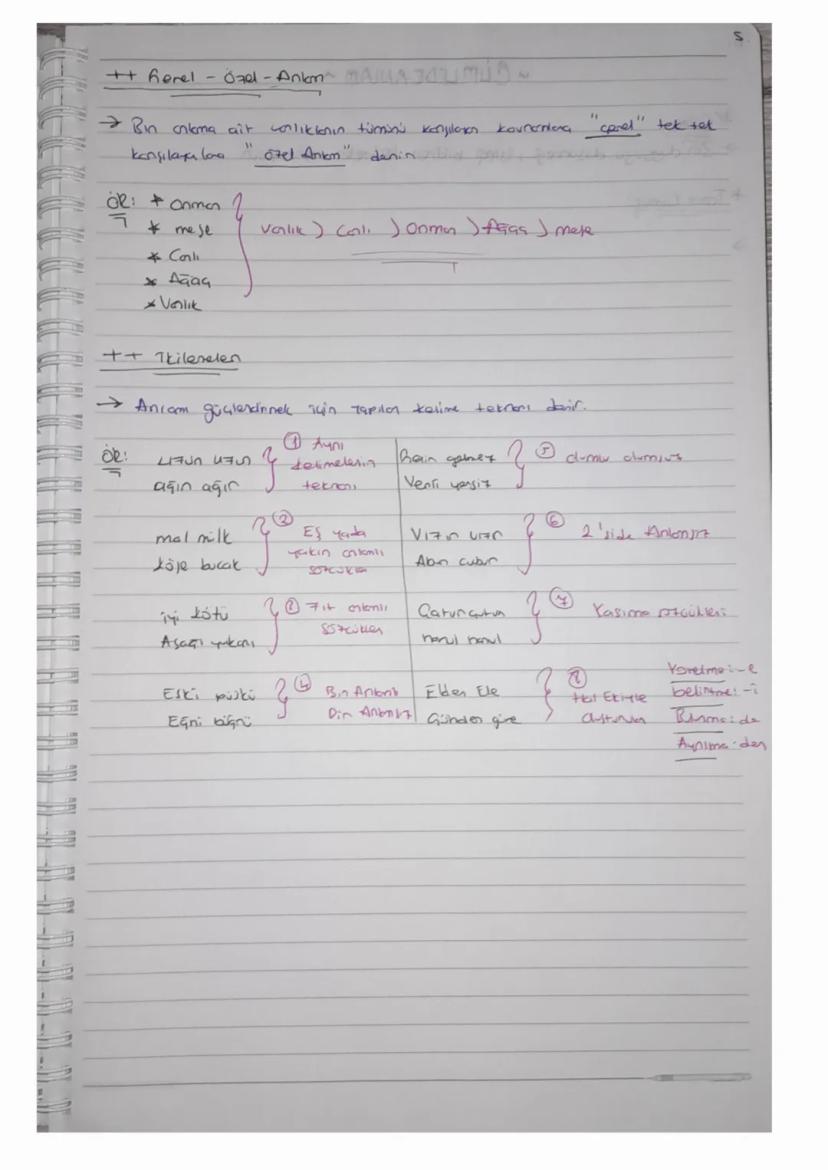 5
++ Genel - Özel - Anlam
→ Bir anlama ait varlıkların tümünü karşılayan kavramlara "genel" tek tek
karşılayanlara "özel Anlam" denir
ÖR: * Orman
* meşe
* Canlı
* Ağaç
* Varlık
Varlık ) Canlı ) Orman ) Ağaç ) meşe
++ İkilemeler
→ Anlam güçlendirmek için yapılan kelime tekrarı denir.
ÖR: uzun uzun
ağır ağır
① Aynı
kelimelerin
tekrarı
mal mülk
köşe bucak
② Eş yada
yakın anlamlı
sözcükler
iyi kötü
Aşağı yukarı
③ Zıt anlamlı
sözcükler
Eski püskü
Eğri büğrü
④ Bir Anlamlı
Diğer Anlamsız
gelmez
Yerli yersiz
⑤ olumlu olumsuz
Vızır vızır
Abur cubur
⑥ 2'side Anlamsız
Çatur çutur
harul harul
⑦ Yansıma sözcükleri
Elden Ele
Günden güne
⑧
Hal Ekiyle
oluşturulan
Yönelme: -e
belirtme: -i
Bulunma: de
Ayrılma: den